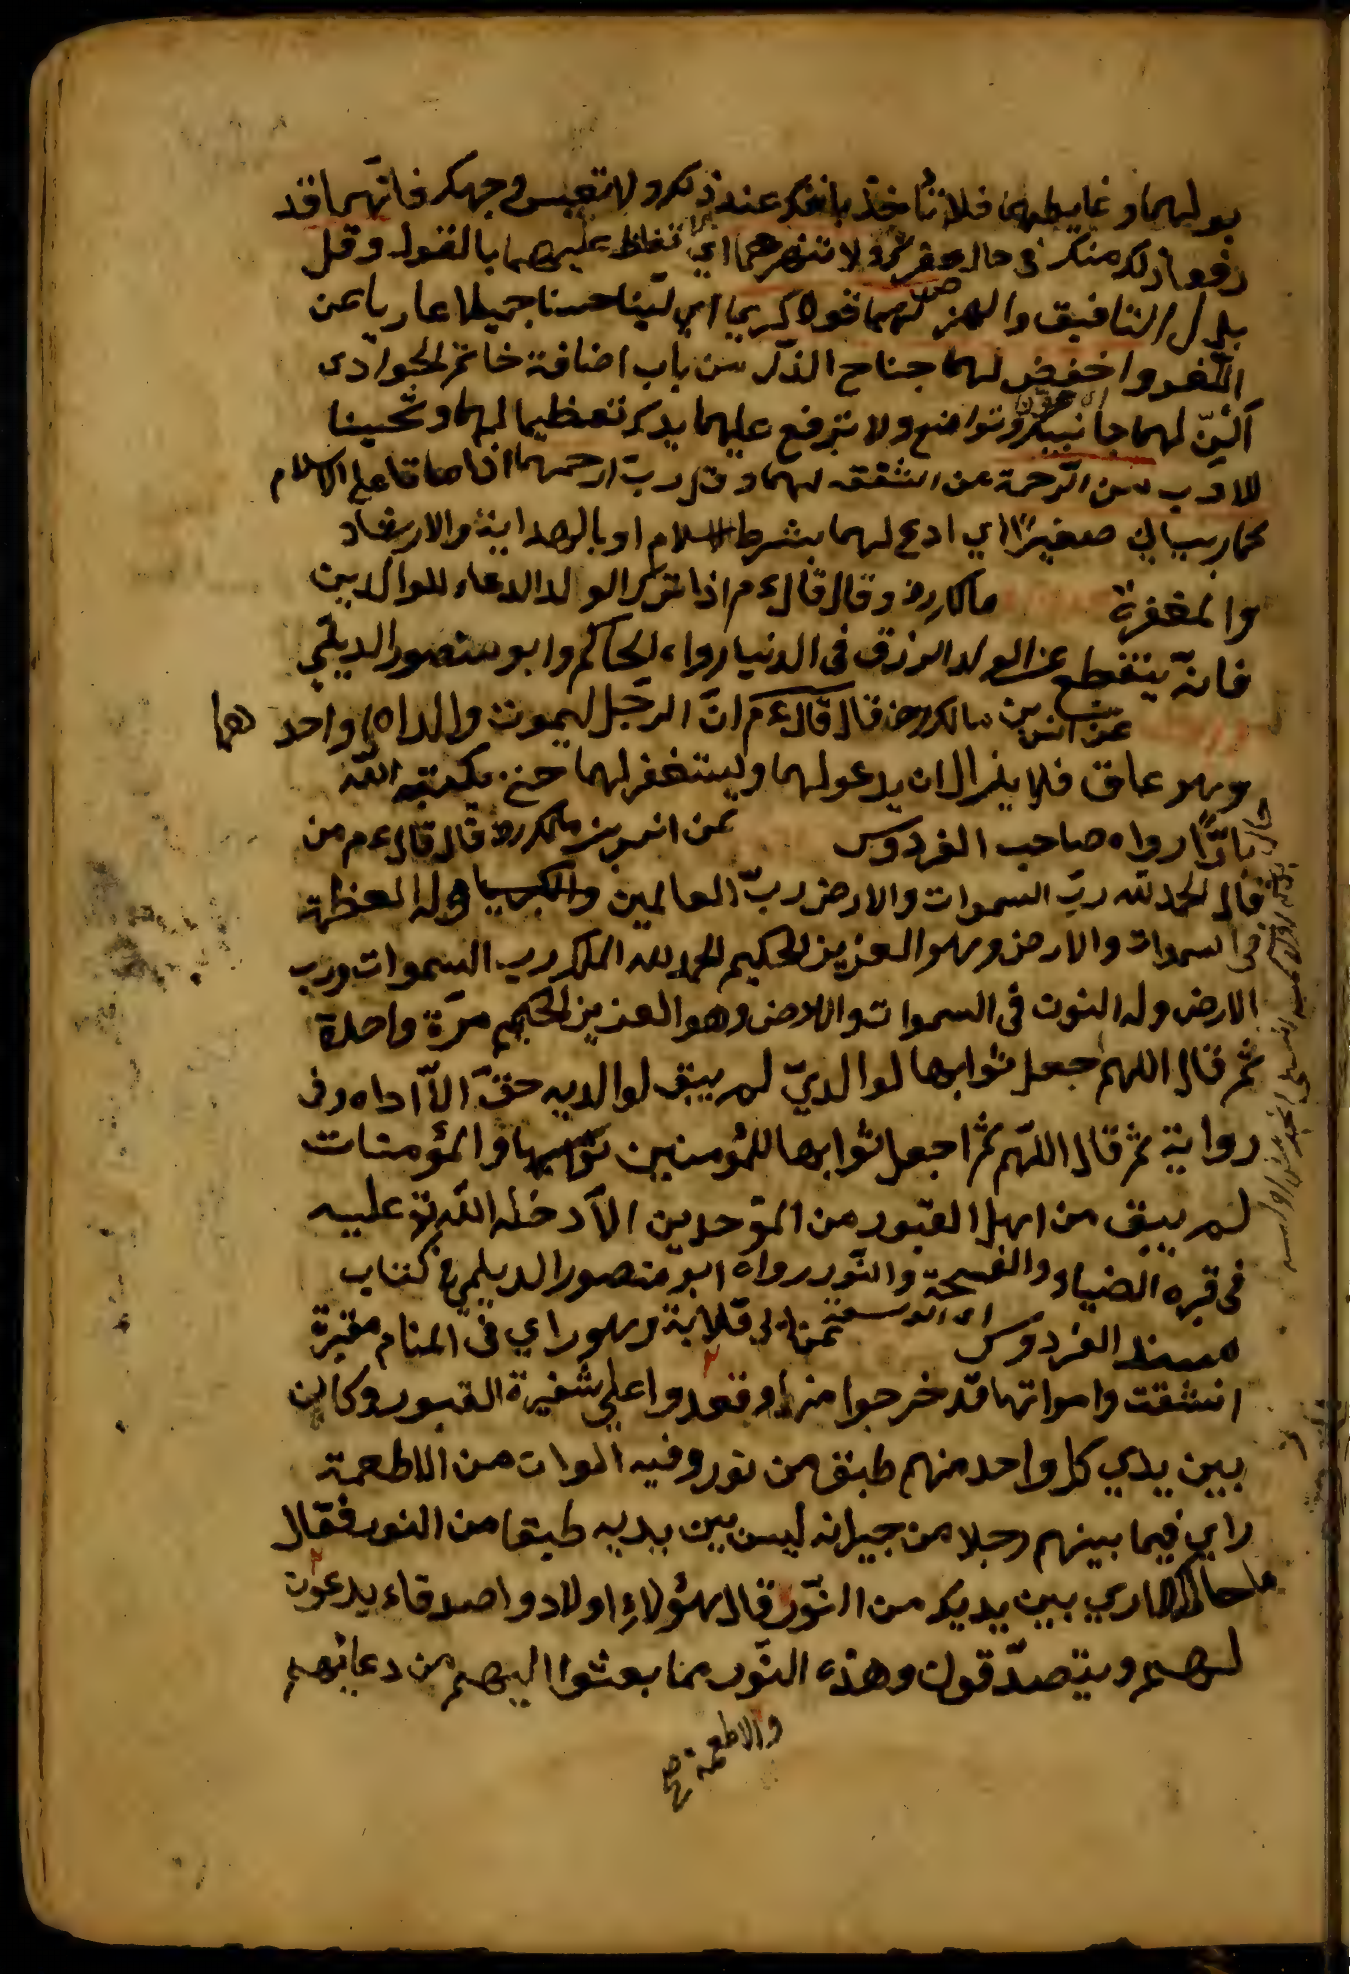 بولهما وغايطهما فلا تأخذ بانفك عند ذلك ولا تعبس وجهك فانهما قد
رفعا ذلك منك في حال صغرك ولا تنهرهما اي لا تغلظ عليهما بالقول وقل
بدل التافيف والنهر لهما قولا كريما اي لينا حسنا جميلا عاريا عن
واخفض لهما جناح الذل من باب اضافة خاتم الجواد اى
الين لهما جانبك وتواضع ولا ترفع عليهما يدك تعظيما لهما وتحسينا
للادب من الرحمة عن الشفقه لهما وقل رب ارحمهما اذا ماتا على الاسلام
كما ربياني صغيرا اي ادع لهما بشرط الاسلام او بالهداية والارشاد
والمغفرة مالك رض وقال قال ءم اذا ترك الولد الدعاء للوالدين
فانه ينقطع عن الولد الرزق في الدنيا رواه الحاكم وابو منصور الديلمي
عن انس بن مالك رض قال قال ءم ان الرجل ليموت والداه او احدهما
وهو عاق فلا يزال ان يدعو لهما وليستغفر لهما حتى يكتبه الله
بارا رواه صاحب الفردوس عن انس بن مالك رض قال قال ءم من
قال الحمد لله رب السموات والارض رب العالمين وله العظمة
في السموات والارض وهو العزيز الحكيم الحمد لله الملك رب السموات ورب
الارض وله النور في السموات والارض وهو العزيز الحكيم مرة واحدة
ثم قال اللهم اجعل ثوابها لوالدي لم يبق لوالديه حق الا اداه وفى
رواية ثم قال اللهم ثم اجعل ثوابها للمؤمنين والمؤمنات
لم يبق من اهل القبور من الموحدين الا ادخله الله تع عليه
في قبره الضياء والفسحة والنور رواه ابو منصور الديلمي في كتاب
اى الوسعة
مسند الفردوس عن ابي قلابة وهو راي في المنام مقبرة
انشقت وامواتها قد خرجوا منها وقعدوا على شفيرة القبور وكان
بين يدي كل واحد منهم طبق من نور وفيه الوان من الاطعمة
راي فيما بينهم رجلا من جيرانه ليس بين يديه طبقا من النور فقال
ما حالك لا اري بين يديك من النور قال هؤلاء اولاد واصدقاء يدعون
لهم ويتصدقون وهذه النور مما بعثوا اليهم من دعائهم
والاطعمة